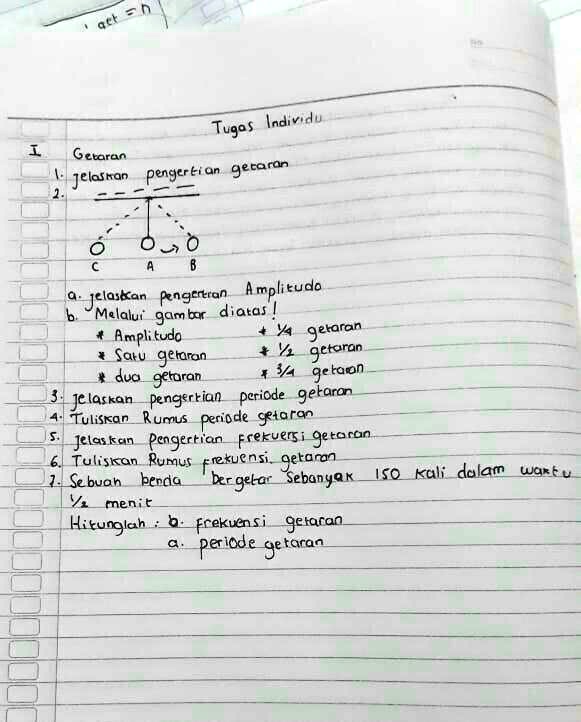 act = n
No
Tugas Individu
I Getaran
1. Jelaskan pengertian getaran
2.
C A B
a. Jelaskan pengertian Amplitudo
b. Melalui gambar diatas!
* Amplitudo * 1/4 getaran
* Satu getaran * 1/2 getaran
* dua getaran * 3/4 getaran
3. Jelaskan pengertian periode getaran
4. Tuliskan Rumus periode getaran
5. Jelaskan Pengertian Frekuensi getaran
6. Tuliskan Rumus frekuensi getaran
7. Sebuah benda bergetar Sebanyak 150 Kali dalam waktu
1/2 menit
Hitunglah : b. frekuensi getaran
a. periode getaran